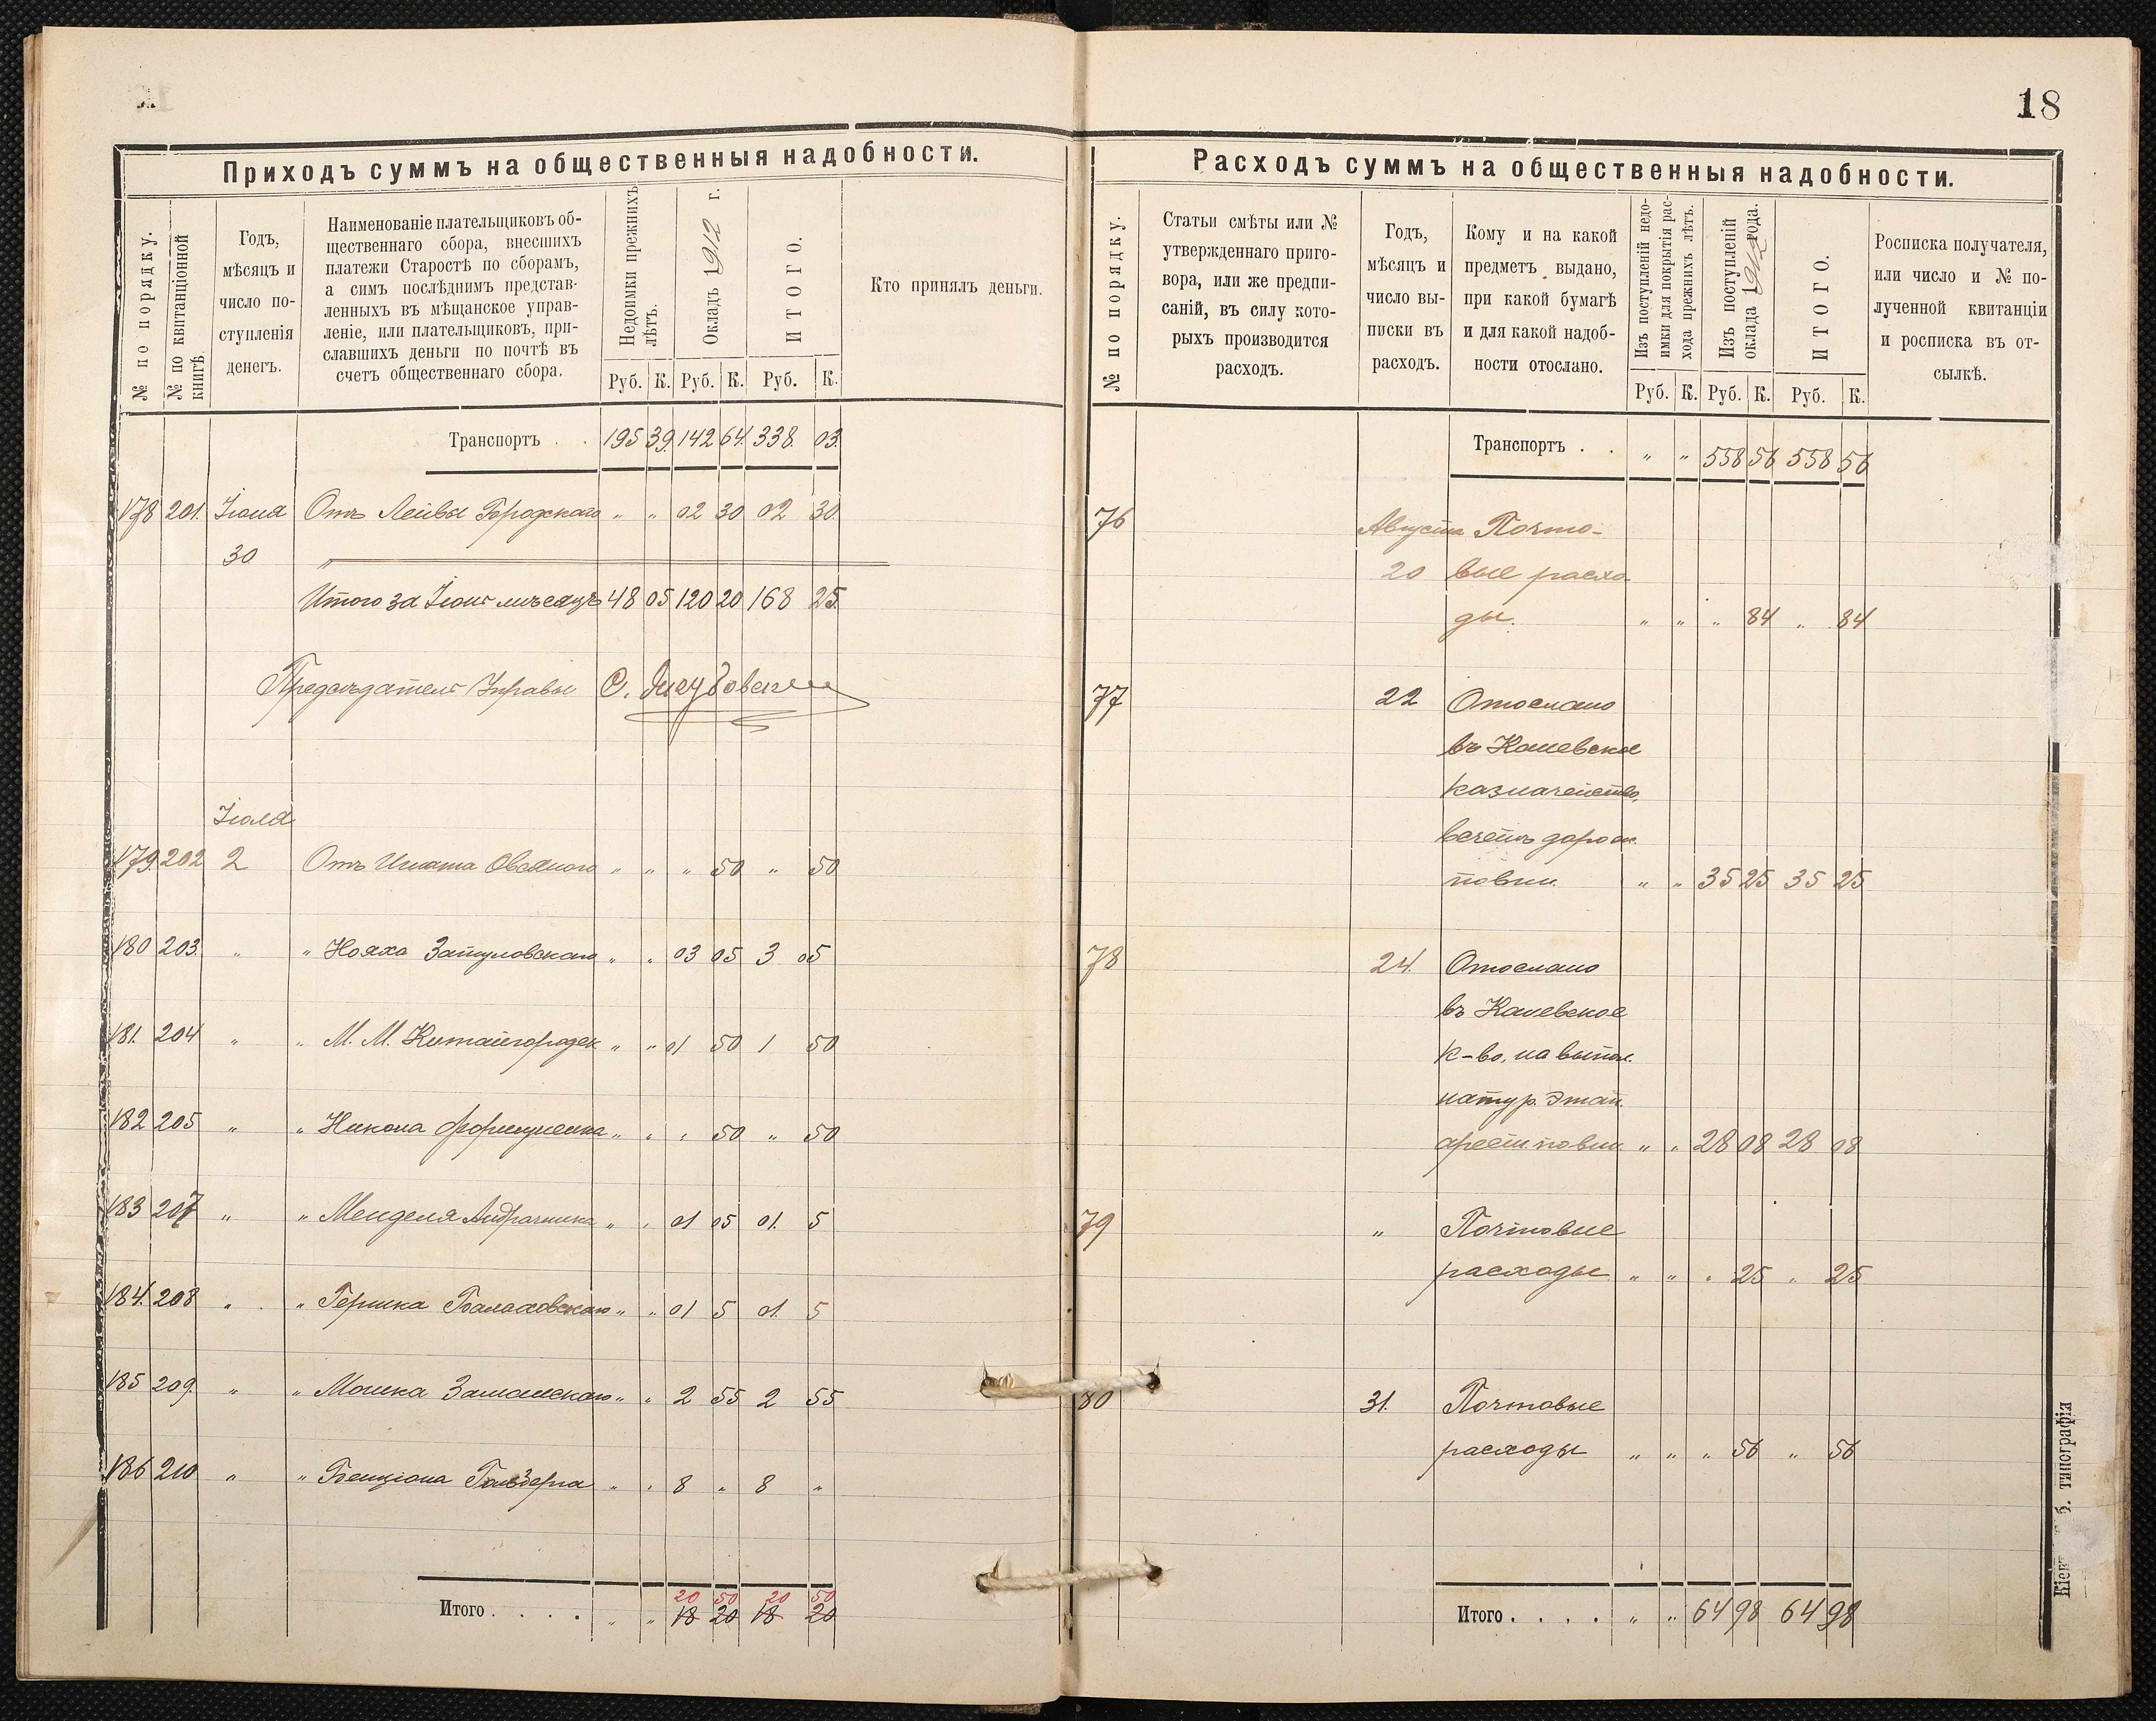 18
Приходъ суммъ на общественныя надобности.
№ по порядку.
№ по квитанціонной книгѣ.
Годъ,
мѣсяцъ и
число по-
ступленія
денегъ.
Наименованіе плательщиковъ об-
щественнаго сбора, внесшихъ
платежи Старостѣ по сборамъ,
а симъ послѣднимъ представ-
ленныхъ въ мѣщанское управ-
леніе, или плательщиковъ, при-
славшихъ деньги по почтѣ въ
счетъ общественнаго сбора.
Недоимки прежнихъ
лѣтъ.
Окладъ 1912 г.
ИТОГО.
Кто принялъ деньги.
Руб. К. Руб. К. Руб. К.
Транспортъ . . 195 39. 142 64. 338. 03.
178 201. Іюня Отъ Лейвы Городскаго „ „ 02 30 02 30.
30 „
Итого за Іюнь мѣсяцъ 48 05 120 20 168 25.
Предсѣдатель Управы С.
Іюля
179. 202 2 Отъ Игната Овсяного „ „ „ 50 „ 50
180 203. „ „ Нояха Затуловскаго „ „ 03 05 3 05
181. 204 „ „ М. М. Китайгородск. „ „ 01 50 1 50
182 205 „ „ Никона „ „ „ 50 „ 50
183 207 „ „ Менделя „ „ 01 05 01. 5
184. 208 „ „ Гершка Балаховскаго „ „ 01 5 01. 5
185 209. „ „ Мошка Заманскаго „ „ 2 55 2 55
186 210 „ „ Бенціона „ „ 8 „ 8 „
20 50 20 50
Итого . . . . „ „ 18 20 18 20
Расходъ суммъ на общественныя надобности.
№ по порядку.
Статьи смѣты или №
утвержденнаго приго-
вора, или же предпи-
саній, въ силу кото-
рыхъ производится
расходъ.
Годъ,
мѣсяцъ и
число вы-
писки въ
расходъ.
Кому и на какой
предметъ выдано,
при какой бумагѣ
и для какой надоб-
ности отослано.
Изъ поступленій недо-
имки для покрытія рас-
хода прежнихъ лѣтъ.
Изъ поступленій
оклада 1912 года.
ИТОГО.
Росписка получателя,
или число и № по-
лученной квитанціи
и росписка въ от-
сылкѣ.
Руб. К. Руб. К. Руб. К.
Транспортъ . . „ „ 558 56 558 56
76 Августа Почто-
20 вые расхо-
ды. „ „ „ 84 „ 84
77 22 Отослано
въ Каневское
казначейство,
всчетъ дорож.
повин. „ „ 35 25 35 25
78 24. Отослано
въ Каневское
к-во, на выпол.
натур. этап.
арест. повин. „ „ 28 08 28 08
79 „ Почтовые
расходы „ „ „ 25 „ 25
80 31. Почтовые
расходы „ „ „ 56 „ 56
Итого . . . . „ „ 64 98 64 98
типографія